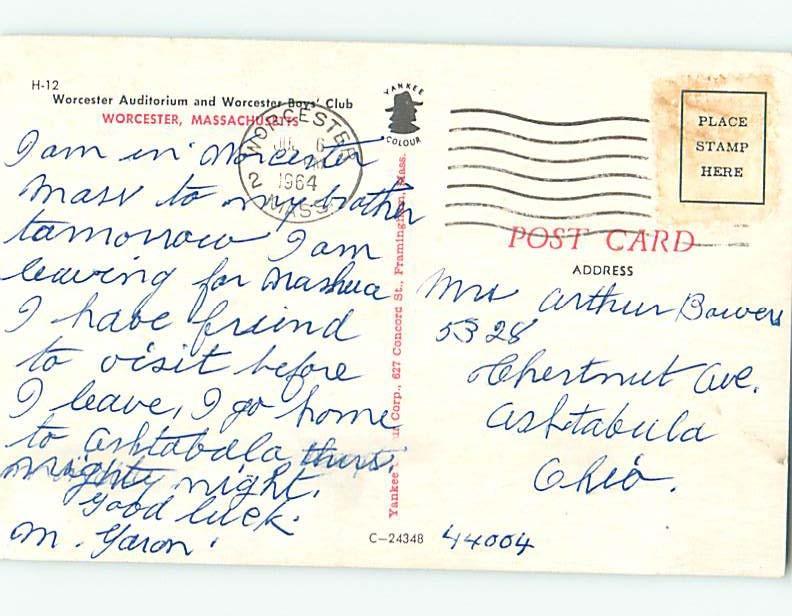 H-12
Worcester Auditorium and Worcester Boys' Club
WORCESTER, MASSACHUSETTS
I am in Worcester
Mass to my brother
tomorrow I am
leaving for Nashua
I have friend
to visit before
I leave, I go home
to Ashtabula thurs.
night.
Good luck.
M. Yaron
WORCESTER
6
1964
2 MASS.
YANKEE
COLOUR
Yankee Corp., 627 Concord St., Framingham, Mass.
C-24348
PLACE
STAMP
HERE
POST CARD
ADDRESS
Mrs Arthur Bowers
5328
Chestnut Ave.
Ashtabula
Ohio.
44004